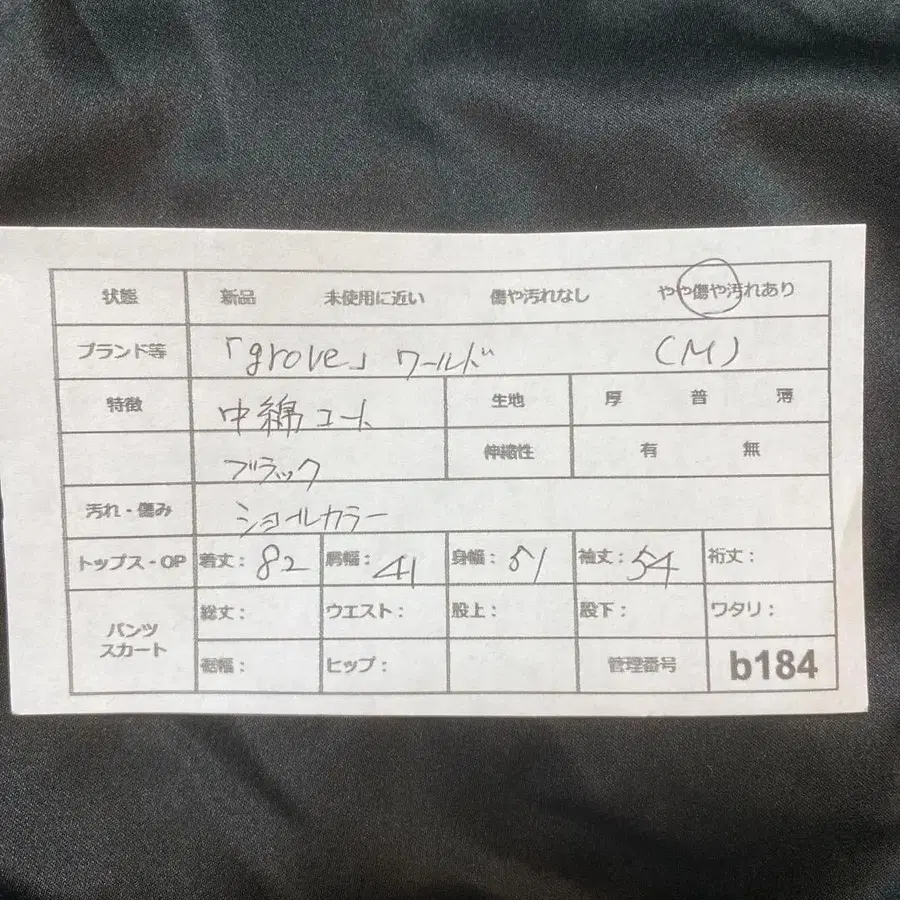 状態 新品 未使用に近い 傷や汚れなし やや傷や汚れあり
ブランド等 「grove」ワールド (M)
特徴 中綿コート 生地 厚 普 薄
ブラック 伸縮性 有 無
汚れ・傷み ショールカラー
トップス・OP 着丈: 82 肩幅: 41 身幅: 51 袖丈: 54 裄丈:
パンツ スカート 総丈: ウエスト: 股上: 股下: ワタリ:
裾幅: ヒップ: 管理番号 b184